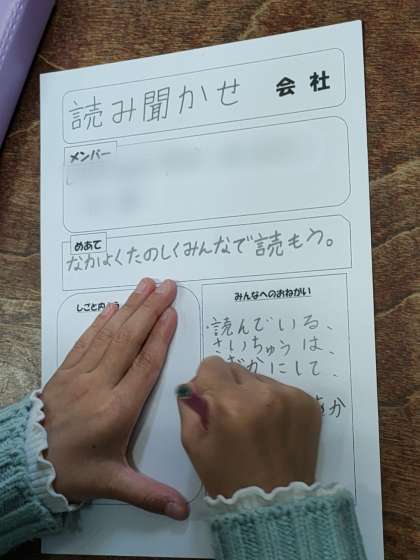 読み聞かせ 会社
メンバー
めあて
なかよくたのしくみんなで読もう。
しごと
みんなへのおねがい
・読んでいる、
さいちゅうは、
かにして、
か